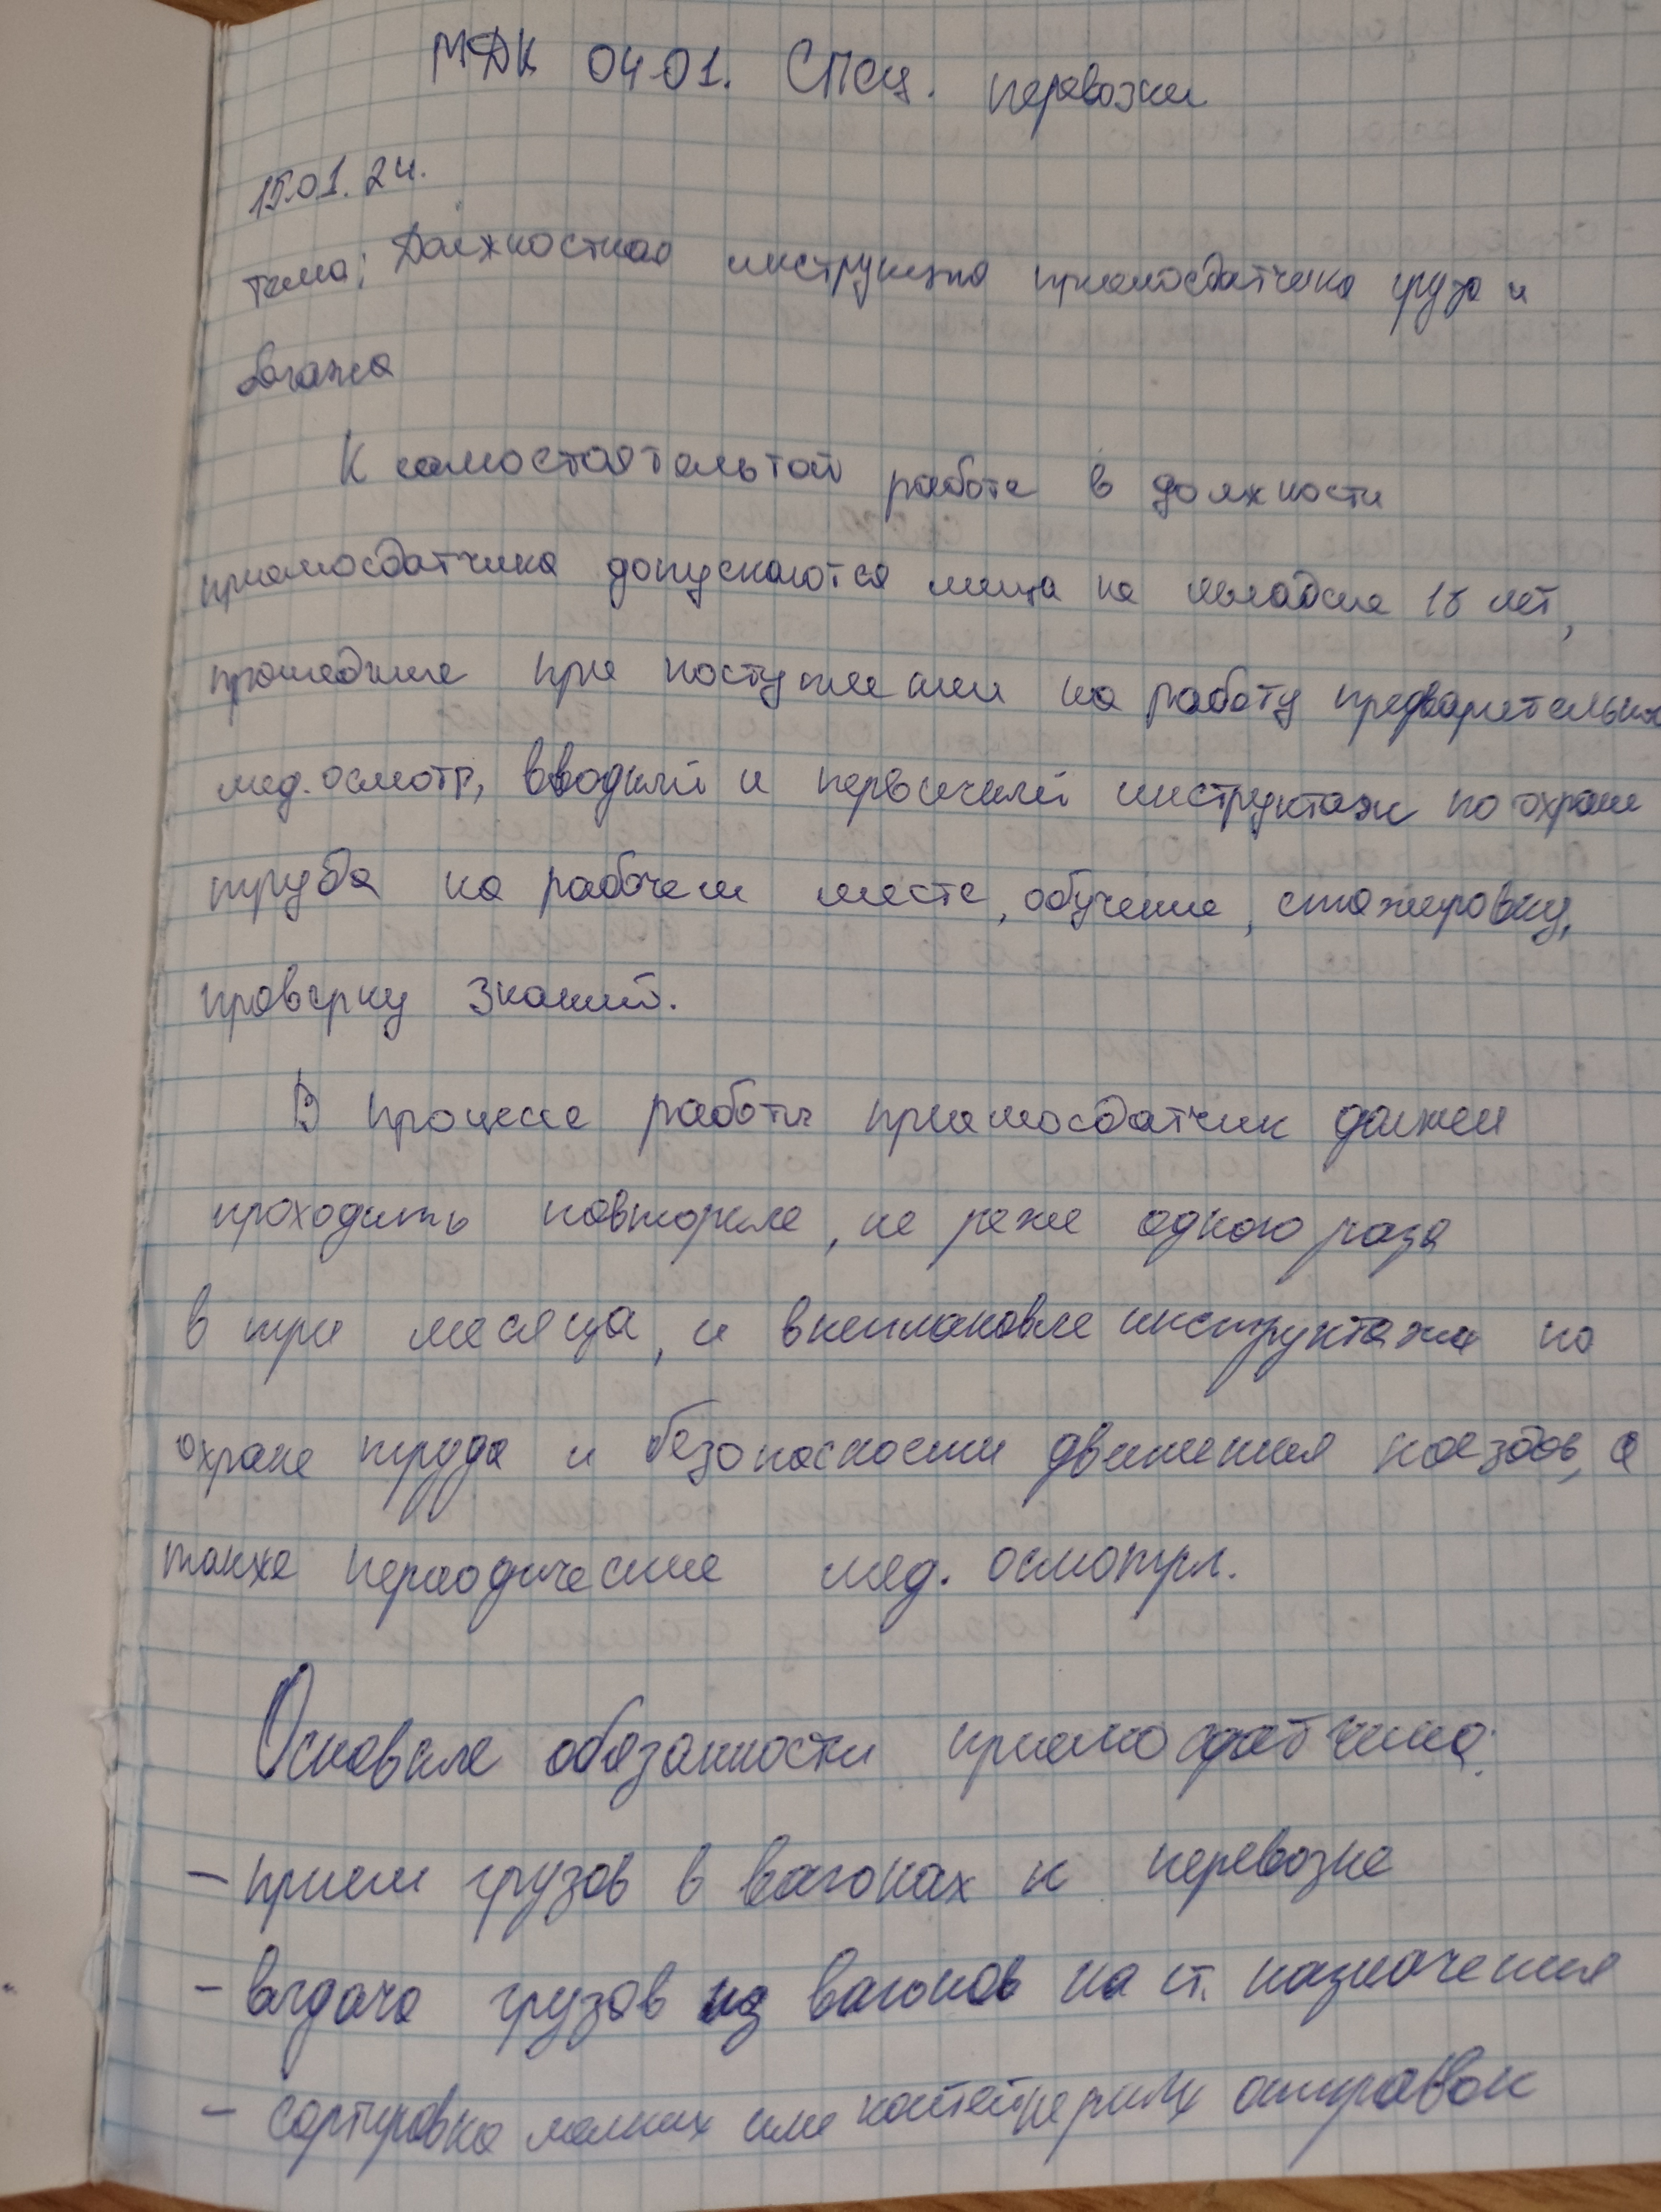 МДК 04 01. Спец. перевозки
15.01.24.
тема; Должностная инструкция приемосдатчика груза и
багажа
К самостоятельной работе в должности
приемосдатчика допускаются лица не младше 18 лет,
прошедшие при поступлении на работу предварительный
мед. осмотр, вводный и первичный инструктаж по охране
труда на рабочем месте, обучение, стажировку,
проверку знаний.
В процессе работы приемосдатчик должен
проходить повторные, не реже одного раза
в три месяца, и внеплановые инструктажи по
охране труда и безопасности движения поездов, а
также периодические мед. осмотры.
Основные обязанности приемосдатчика:
- прием грузов в вагонах к перевозке
- выдача грузов из вагонов на ст. назначения
- сортировка мелких или контейнерных отправок